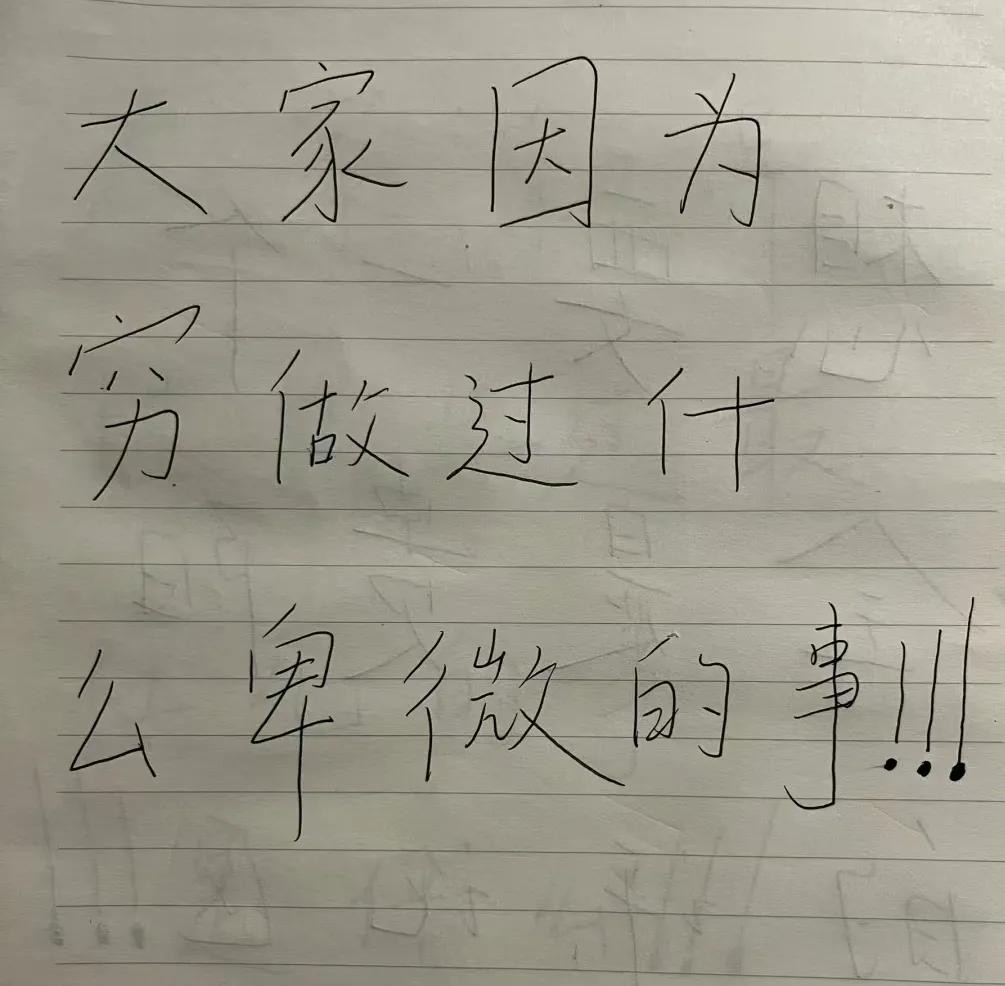 大家因为
穷做过什
么卑微的事!!!